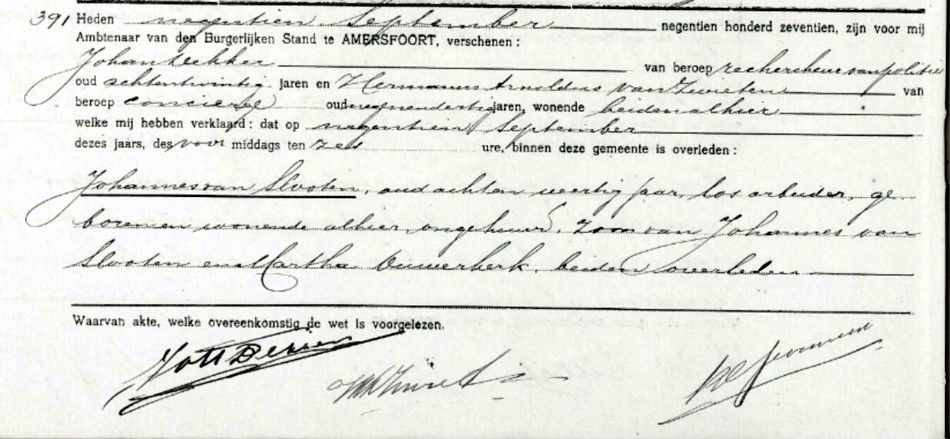 391 Heden negentien September negentien honderd zeventien, zijn voor mij
Ambtenaar van den Burgerlijken Stand te AMERSFOORT, verschenen:
Johan Dekker van beroep rechercheur van politie
oud achtentwintig jaren en Hermanus Arnoldus van Zwieten van
beroep concierge oud negenendertig jaren, wonende beiden alhier
welke mij hebben verklaard: dat op negentien September
dezes jaars, des voor middags ten zes ure, binnen deze gemeente is overleden:
Johannes van Slooten, oud achten veertig jaar, los arbeider, ge-
boren en wonende alhier, ongehuwd, zoon van Johannes van
Slooten en Martha Ouwerkerk, beiden overleden
Waarvan akte, welke overeenkomstig de wet is voorgelezen.